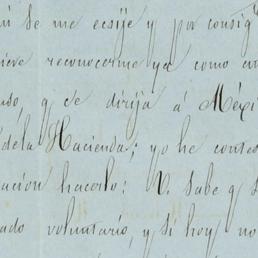 se me ecsije y por consig
reconocerme ya como un
uso, q. de dirija á Méxi
dela Hacienda; yo he contes
ación hacerlo: V. Sabe q. S
ado voluntario, y si hoy no